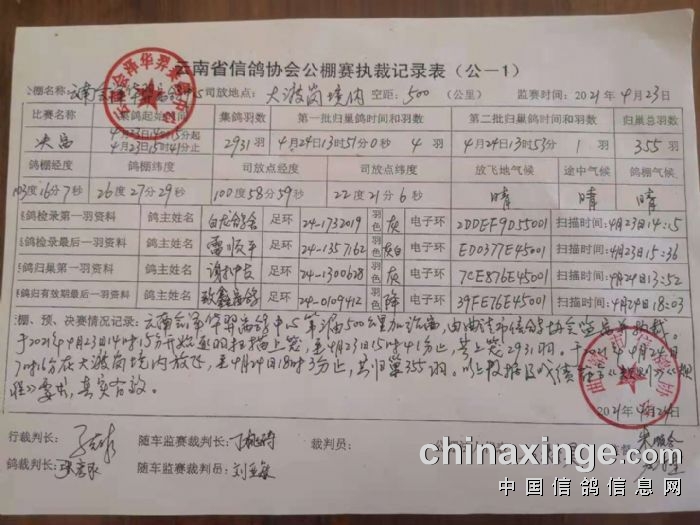 云南省信鸽协会公棚赛执裁记录表（公－1）
棚名称： 司放地点：大渡岗境内 空距：500（公里） 监赛时间：2021年4月23日
比赛名称 集鸽起始时间 集鸽羽数 第一批归巢鸽时间和羽数 第二批归巢鸽时间和羽数 归巢总羽数
决赛 4月23日14时15分起 4月23日15时41分止 2931羽 4月24日13时51分0秒 4羽 4月24日13时53分 1羽 355羽
鸽棚经度 鸽棚纬度 司放点经度 司放点纬度 放飞地气候 途中气候 鸽棚气候
103度16分7秒 26度27分29秒 100度58分59秒 22度21分6秒 晴 晴 晴
鸽检录第一羽资料 鸽主姓名 足环 24-1732019 羽色 灰 电子环 2DDEF9D55001 扫描时间：4月23日14:15
鸽检录最后一羽资料 鸽主姓名 雷顺平 足环 24-1357162 羽色 灰白 电子环 ED0377E45001 扫描时间：4月23日15:36
鸽归巢第一羽资料 鸽主姓名 足环 24-1300628 羽色 灰 电子环 7CE876E45001 扫描时间：4月24日13:52
鸽归有效期最后一羽资料 鸽主姓名 足环 24-0109412 羽色 电子环 39FE76E45001 扫描时间：4月24日18:03
棚、预、决赛情况记录：
于2021年4月23日14时15分开始逐羽扫描上笼，至4月23日15时41分止，共上笼2931羽。于2021年4月24日
7时16分在大渡岗境内放飞，至4月24日18时3分止，共归巢355羽。
程》要求，真实有效。
2021年4月24日
行裁判长： 随车监赛裁判长： 裁判员：
鸽裁判长： 随车监赛裁判员：
chinaxinge.com
中国信鸽信息网